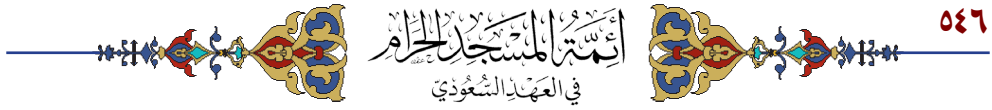 ٥٤٦
أئمة المسجد الحرام
في العهد السعودي